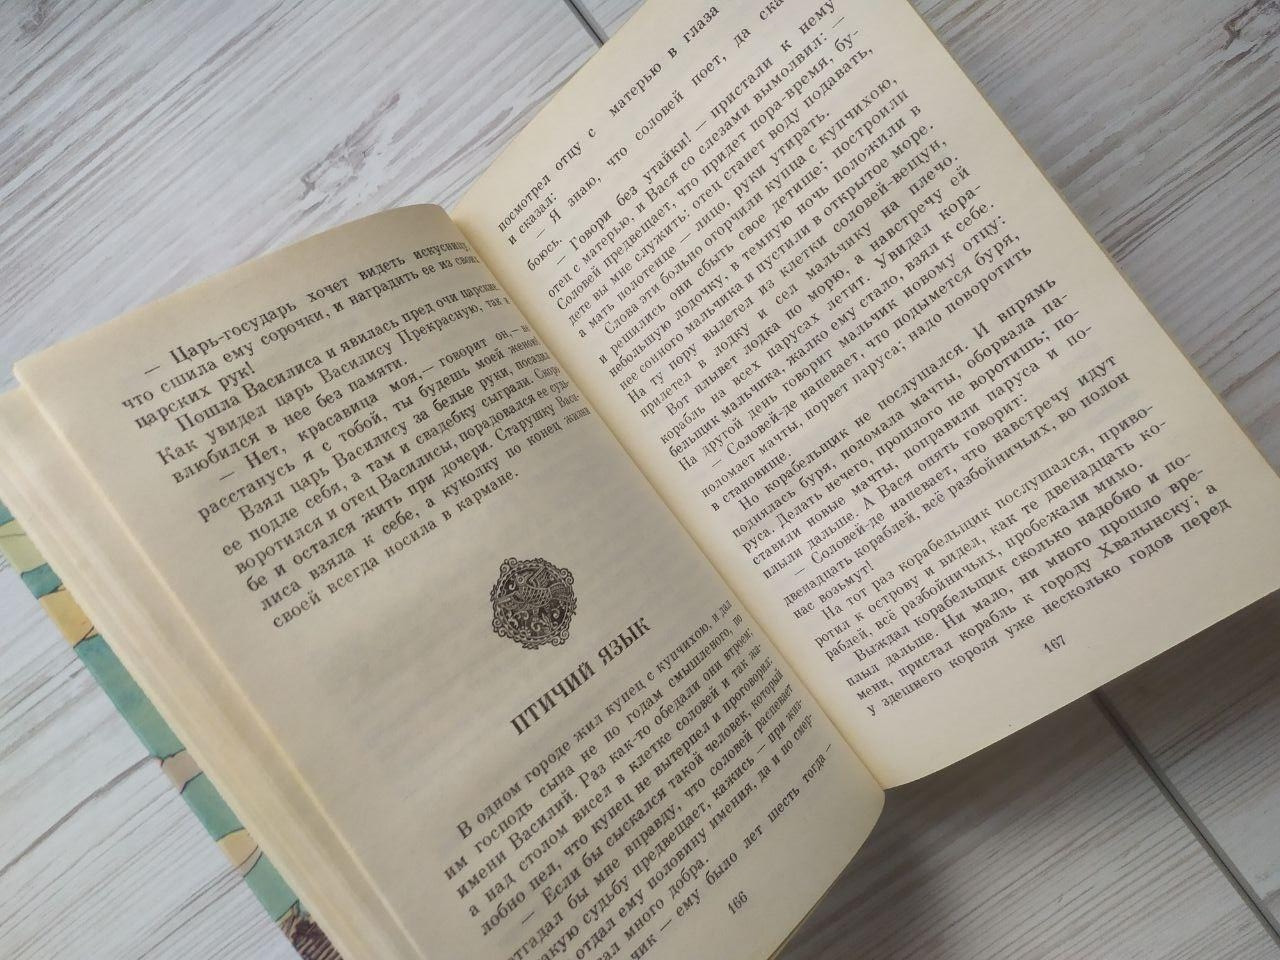 — Царь-государь хочет видеть искусницу,
что сшила ему сорочки, и наградить ее из своих
царских рук!
Пошла Василиса и явилась пред очи царские.
Как увидел царь Василису Прекрасную, так и
влюбился в нее без памяти.
— Нет, красавица моя,— говорит он,— не
расстанусь я с тобой, ты будешь моей женой.
Взял царь Василису за белые руки, посадил
ее подле себя, а там и свадебку сыграли. Скоро
воротился и отец Василисы, порадовался ее судь-
бе и остался жить при дочери. Старушку Васи-
лиса взяла к себе, а куколку по конец жизни
своей всегда носила в кармане.
ПТИЧИЙ ЯЗЫК
В одном городе жил купец с купчихою, и дал
им господь сына не по годам смышленого, по
имени Василий. Раз как-то обедали они втроем;
а над столом висел в клетке соловей и так жа-
лобно пел, что купец не вытерпел и проговорил:
— Если бы сыскался такой человек, который
отгадал бы мне вправду, что соловей распевает
какую судьбу предвещает, кажись — при жиз-
отдал ему половину имения, да и по смер-
много добра.
— ему было лет шесть тогда —
166
посмотрел отцу с матерью в глаза
и сказал:
— Я знаю, что соловей поет, да
боюсь.
— Говори без утайки! — пристали к нему
отец с матерью, и Вася со слезами вымолвил: —
Соловей предвещает, что придет пора-время, бу-
дете вы мне служить: отец станет воду подавать,
а мать полотенце — лицо, руки утирать.
Слова эти больно огорчили купца с купчихою,
и решились они сбыть свое детище; построили
небольшую лодочку, в темную ночь положили в
нее сонного мальчика и пустили в открытое море.
На ту пору вылетел из клетки соловей-вещун,
прилетел в лодку и сел мальчику на плечо.
Вот плывет лодка по морю, а навстречу ей
корабль на всех парусах летит. Увидал кора-
бельщик мальчика, жалко ему стало, взял к себе.
На другой день говорит мальчик новому отцу:
— Соловей-де напевает, что подымется буря,
поломает мачты, порвет паруса; надо поворотить
в становище.
Но корабельщик не послушался. И впрямь
поднялась буря, поломала мачты, оборвала па-
руса. Делать нечего, прошлого не воротишь; по-
ставили новые мачты, поправили паруса и по-
плыли дальше. А Вася опять говорит:
— Соловей-де напевает, что навстречу идут
двенадцать кораблей, всё разбойничьих, во полон
нас возьмут!
На тот раз корабельщик послушался, приво-
ротил к острову и видел, как те двенадцать ко-
раблей, всё разбойничьих, пробежали мимо.
Выждал корабельщик сколько надобно и по-
плыл дальше. Ни мало, ни много прошло вре-
мени, пристал корабль к городу Хвалынску; а
у здешнего короля уже несколько годов перед
167